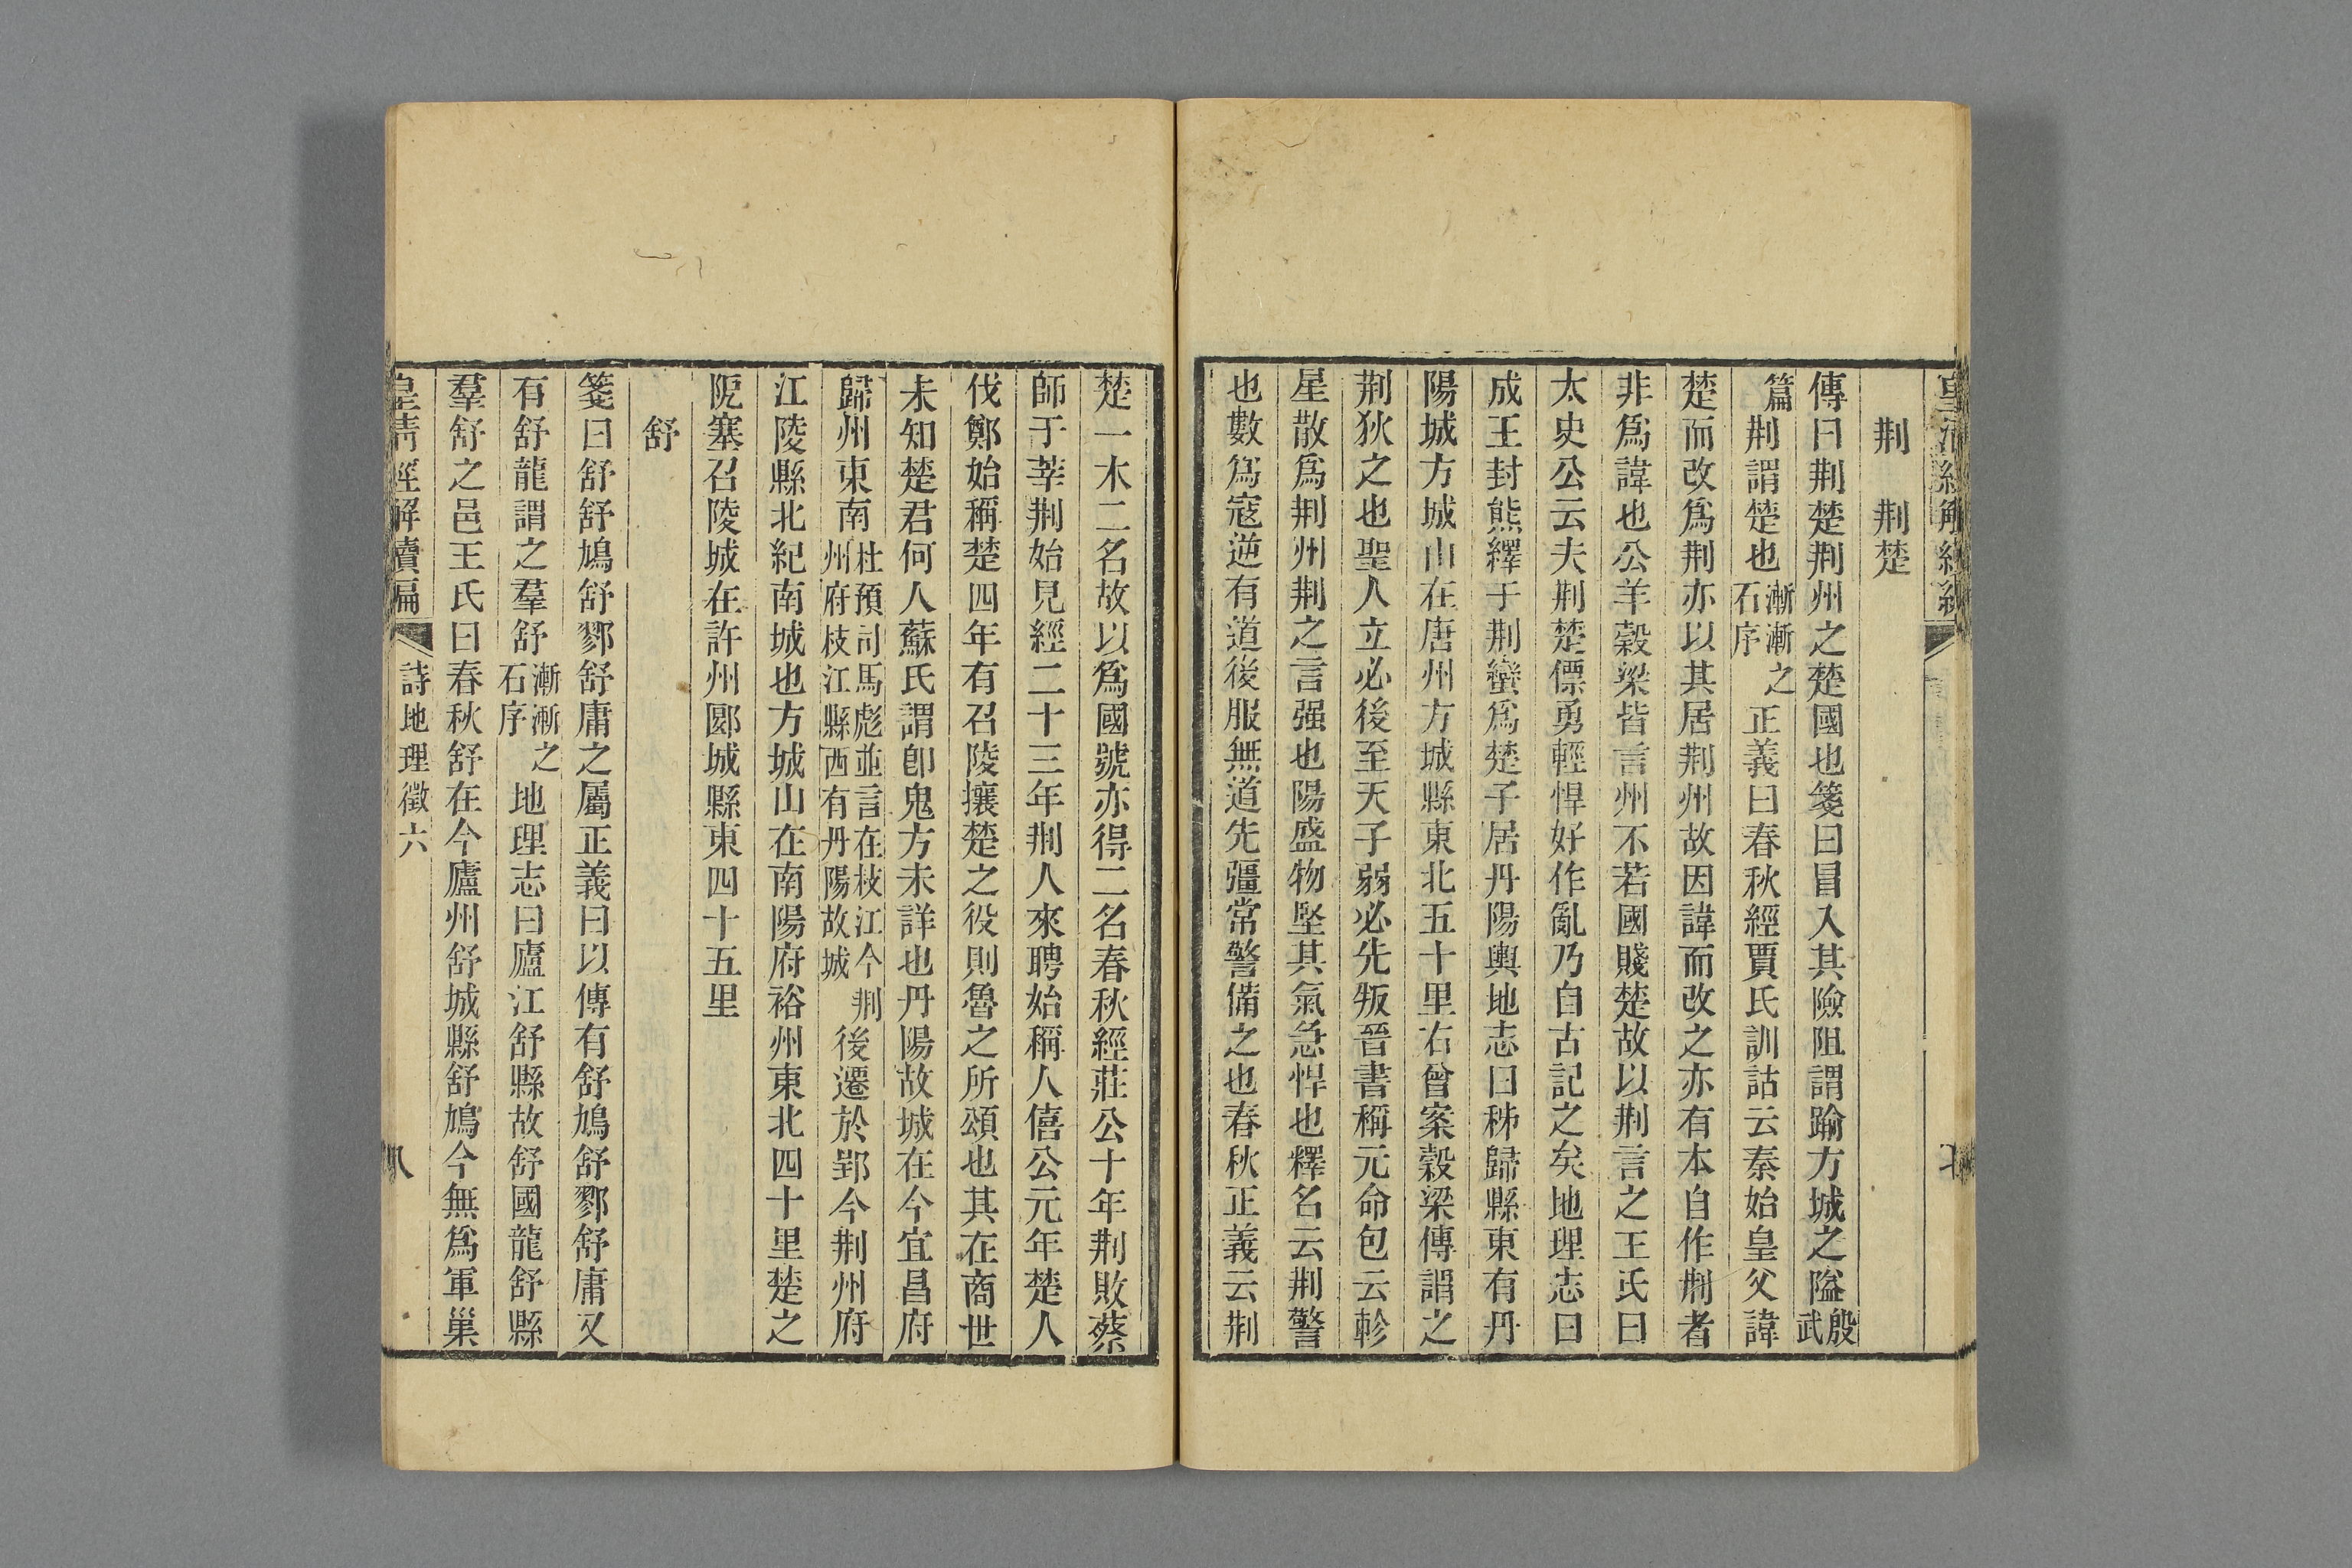 荆　荆楚
傳曰荆楚荆州之楚國也箋曰冒入其險阻謂踰方城之隘殷武
篇荆謂楚也漸漸之石序正義曰春秋經賈氏訓詁云秦始皇父諱
楚而改爲荆亦以其居荆州故因諱而改之亦有本自作荆者
非爲諱也公羊穀梁皆言州不若國賤楚故以荆言之王氏曰
太史公云夫荆楚僄勇輕悍好作亂乃自古記之矣地理志曰
成王封熊繹于荆蠻爲楚子居丹陽輿地志曰秭歸縣東有丹
陽城方城山在唐州方城縣東北五十里右曾案穀梁傳謂之
荆狄之也聖人立必後至天子弱必先叛晉書稱元命包云軫
星散爲荆州荆之言强也陽盛物堅其氣急悍也釋名云荆警
也數爲寇逆有道後服無道先彊常警備之也春秋正義云荆
楚一木二名故以爲國號亦得二名春秋經莊公十年荆敗蔡
師于莘荆始見經二十三年荆人來聘始稱人僖公元年楚人
伐鄭始稱楚四年有召陵攘楚之役則魯之所頌也其在商世
未知楚君何人蘇氏謂卽鬼方未詳也丹陽故城在今宜昌府
歸州東南杜預司馬彪並言在枝江今荆州府枝江縣西有丹陽故城後遷於郢今荆州府
江陵縣北紀南城也方城山在南陽府裕州東北四十里楚之
阨塞召陵城在許州郾城縣東四十五里
舒
箋曰舒舒鳩舒鄝舒庸之屬正義曰以傳有舒鳩舒鄝舒庸又
有舒龍謂之羣舒漸漸之石序地理志曰廬江舒縣故舒國龍舒縣
羣舒之邑王氏曰春秋舒在今廬州舒城縣舒鳩今無爲軍巢
皇清經解續編　詩地理徵六　八